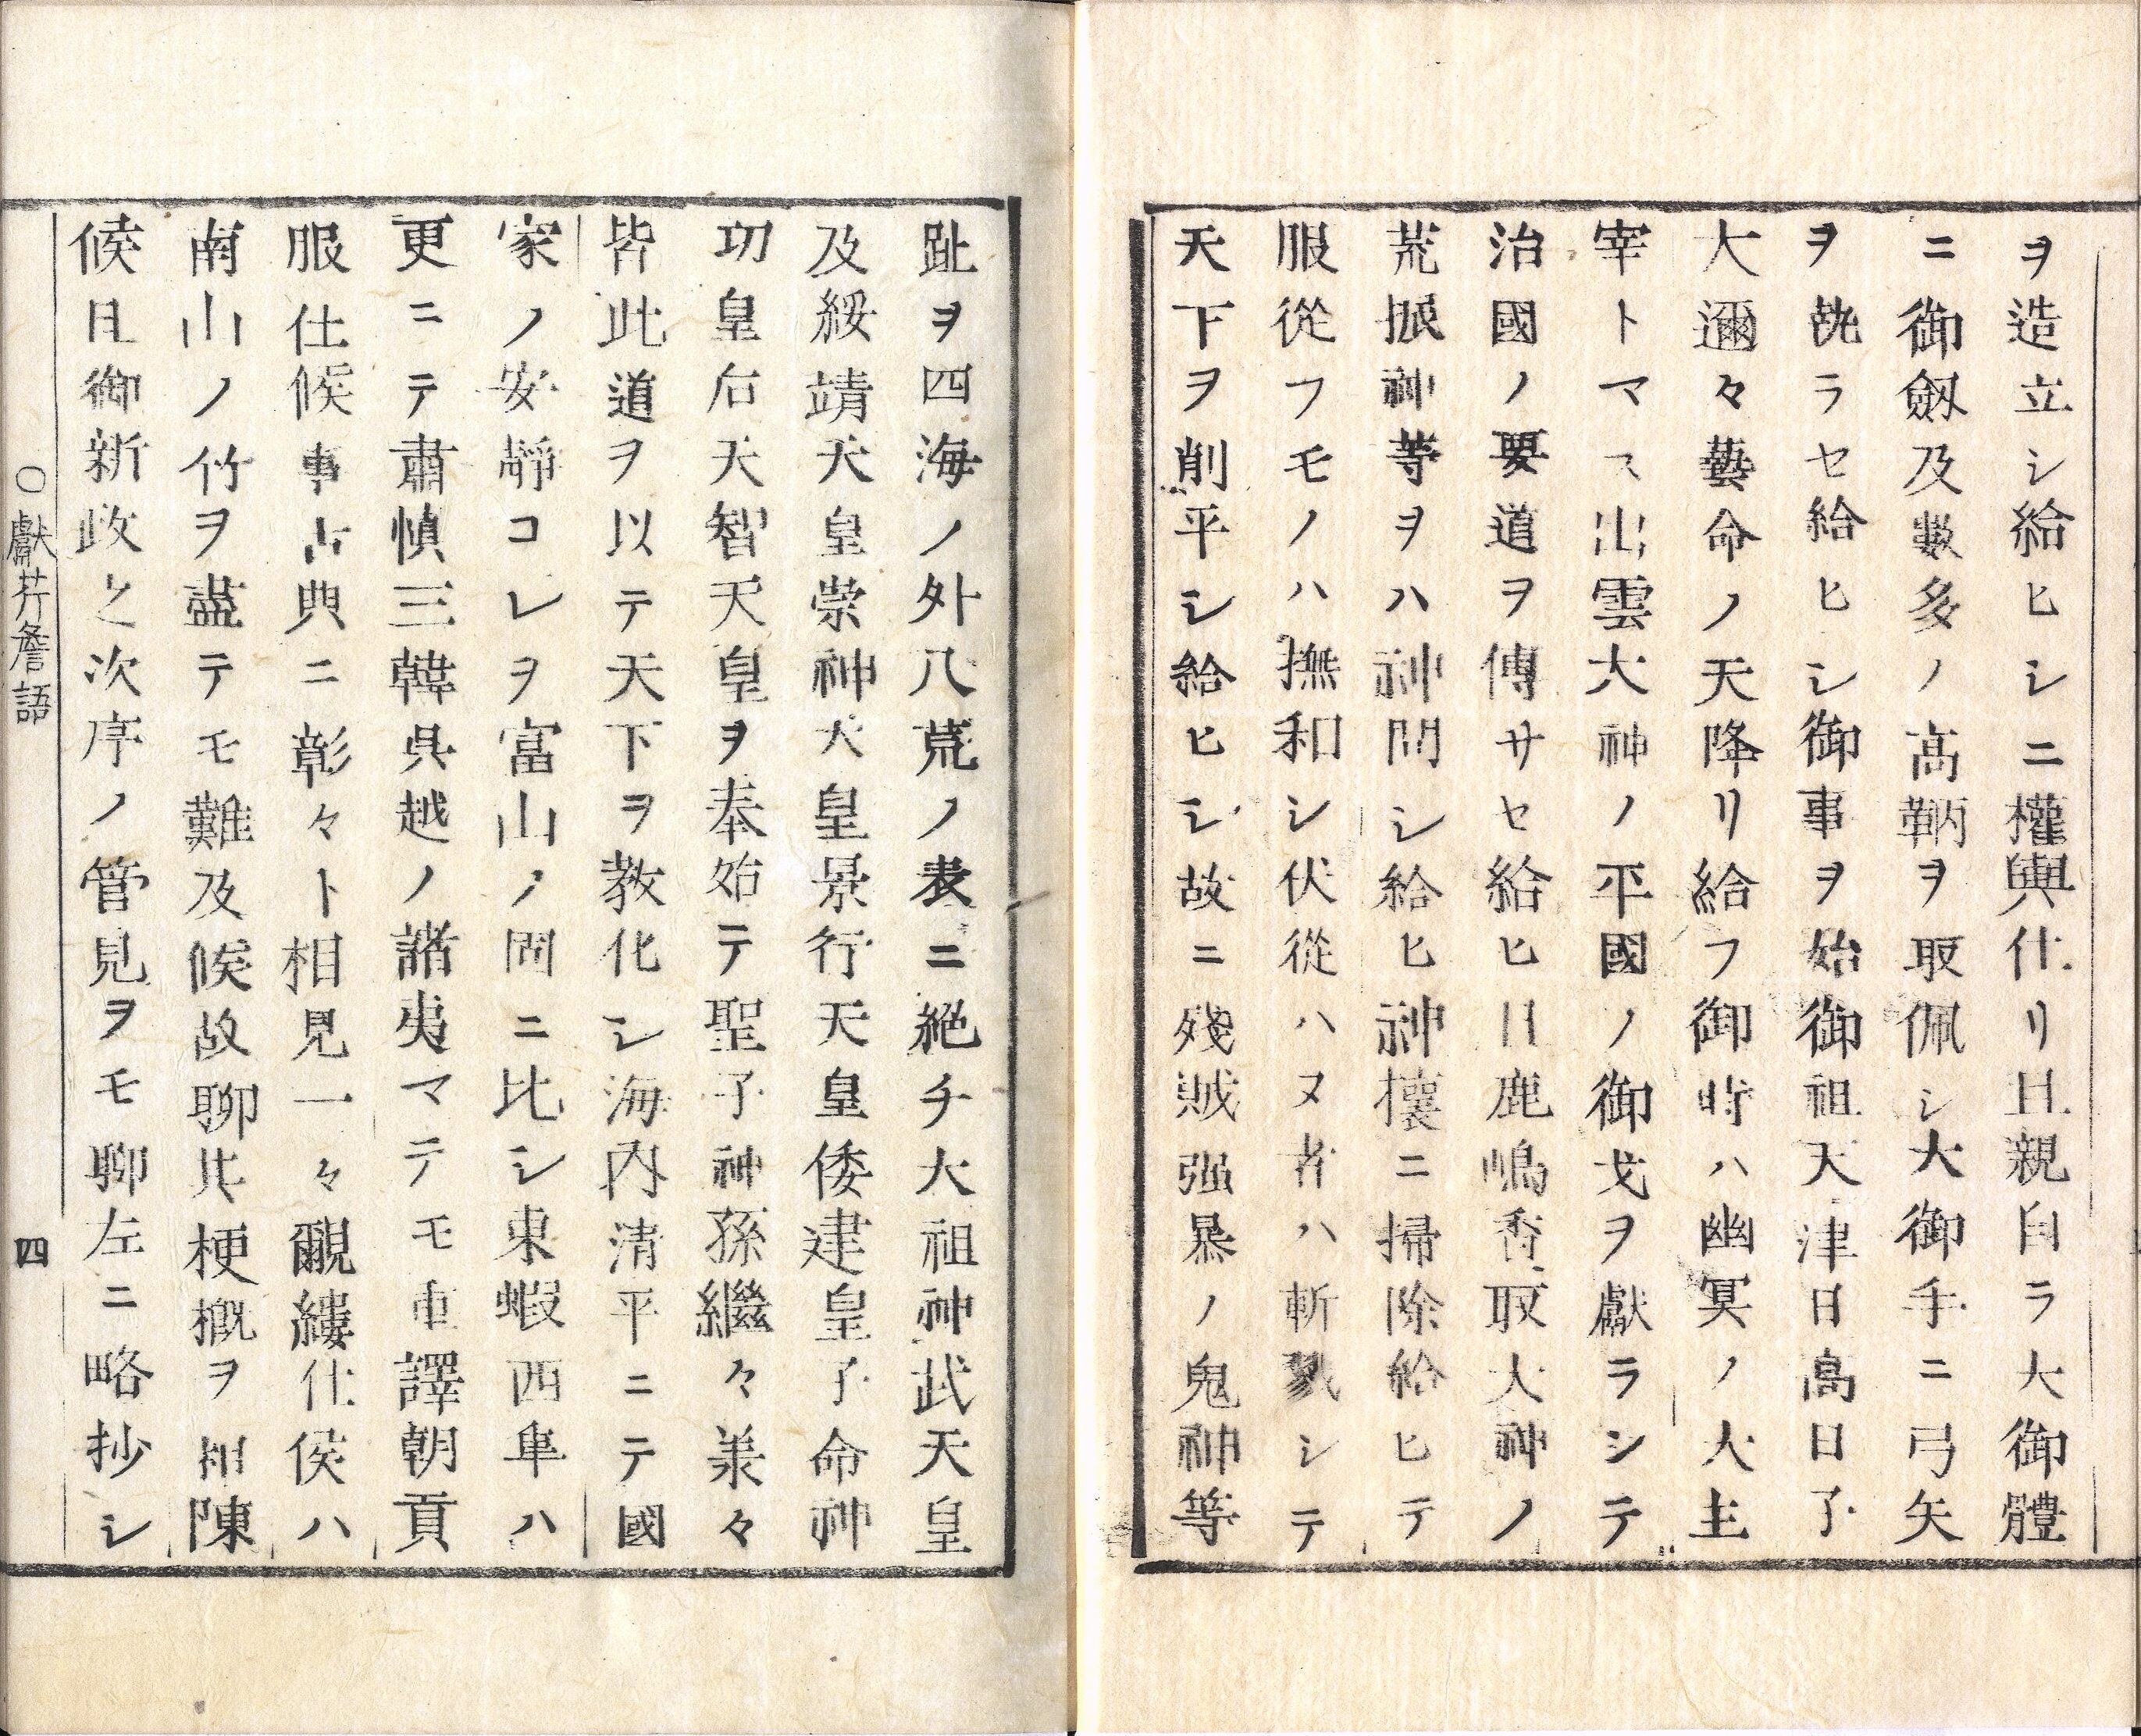 ヲ造立シ給ヒシニ權輿仕リ且親自ラ大御體
ニ御劔及數多ノ高鞆ヲ取佩シ大御手ニ弓矢
ヲ執ラセ給ヒシ御事ヲ始御祖天津日高日子
大邇々藝命ノ天降リ給フ御時ハ幽冥ノ大主
宰トマス出雲大神ノ平國ノ御戈ヲ獻ラシテ
治國ノ要道ヲ傳サセ給ヒ日鹿嶋香取大神ノ
荒振神等ヲハ神問シ給ヒ神攘ニ掃除給ヒテ
服從フモノハ撫和シ伏從ハヌ者ハ斬戮シテ
天下ヲ削平シ給ヒシ故ニ殘賊强暴ノ鬼神等
趾ヲ四海ノ外八荒ノ表ニ絕チ大祖神武天皇
及綏靖天皇崇神天皇景行天皇倭建皇子命神
功皇后天智天皇ヲ奉始テ聖子神孫繼々美々
皆此道ヲ以テ天下ヲ敎化シ海內清平ニテ國
家ノ安靜コレヲ富山ノ固ニ比シ東蝦西隼ハ
更ニテ肅愼三韓呉越ノ諸夷マテモ重譯朝貢
服仕候事古典ニ彰々ト相見一々覼縷仕候ハ
南山ノ竹ヲ盡テモ難及候故聊其梗概ヲ相陳
候且御新政之次序ノ管見ヲモ聊左ニ略抄シ
○獻芹詹語 四